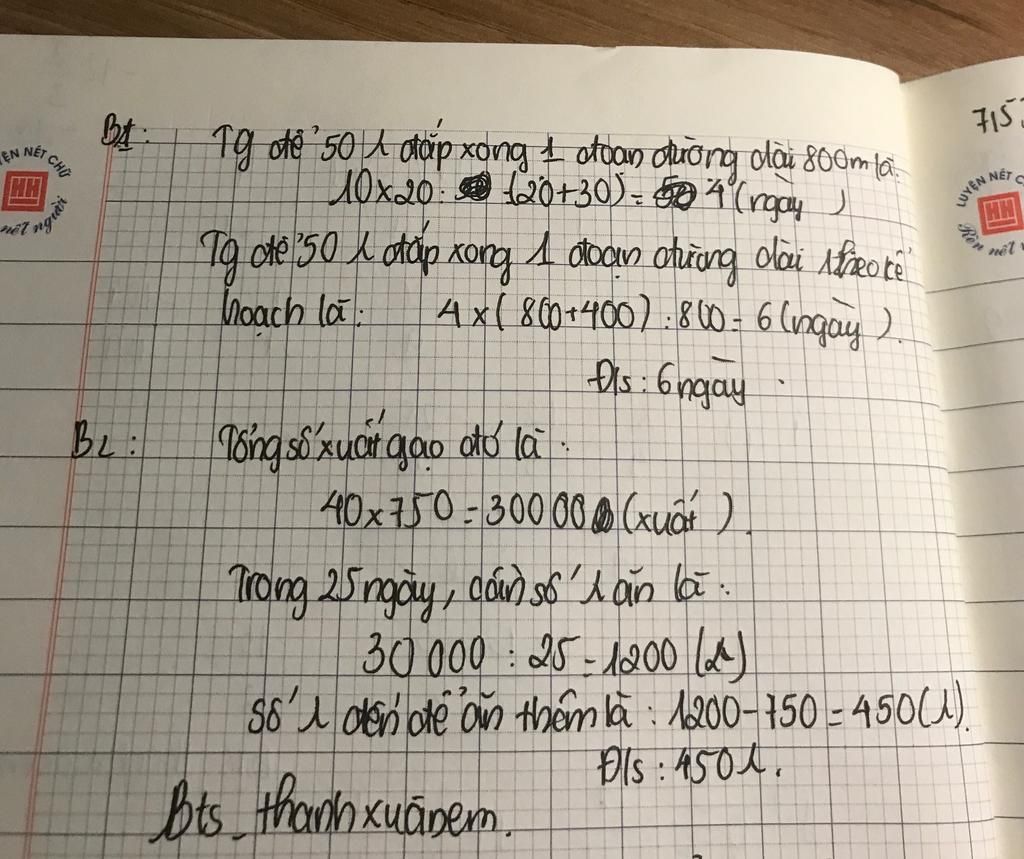 LUYỆN NÉT CHỮ
HH
nết người
B1: Tg để 50 λ đắp xong 1 đoạn đường dài 800m là:
10 x 20 : (20+30) = 4 (ngày)
Tg để 50 λ đắp xong 1 đoạn đường dài theo kế
hoạch là: 4 x ( 800+400) : 800 = 6 (ngày).
Đ/s : 6 ngày.
B2: Tổng số xuất gạo đó là:
40 x 750 = 30000 (xuất).
Trong 25 ngày, cần số λ ăn là:
30 000 : 25 = 1200 (λ)
Số λ đến để ăn thêm là: 1200 - 750 = 450 (λ).
Đ/s : 450 λ.
Bts_thanhxuânem.
715
LUYỆN NÉT
HH
Rèn nết